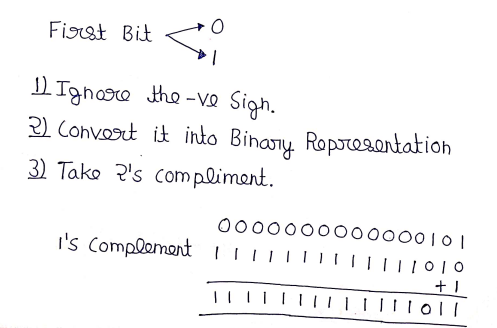 First Bit 0
1
1) Ignore the -ve Sign.
2) Convert it into Binary Representation
3) Take 2's compliment.
0000000000000101
1's Complement 1111111111111010
+1
1111111111111011